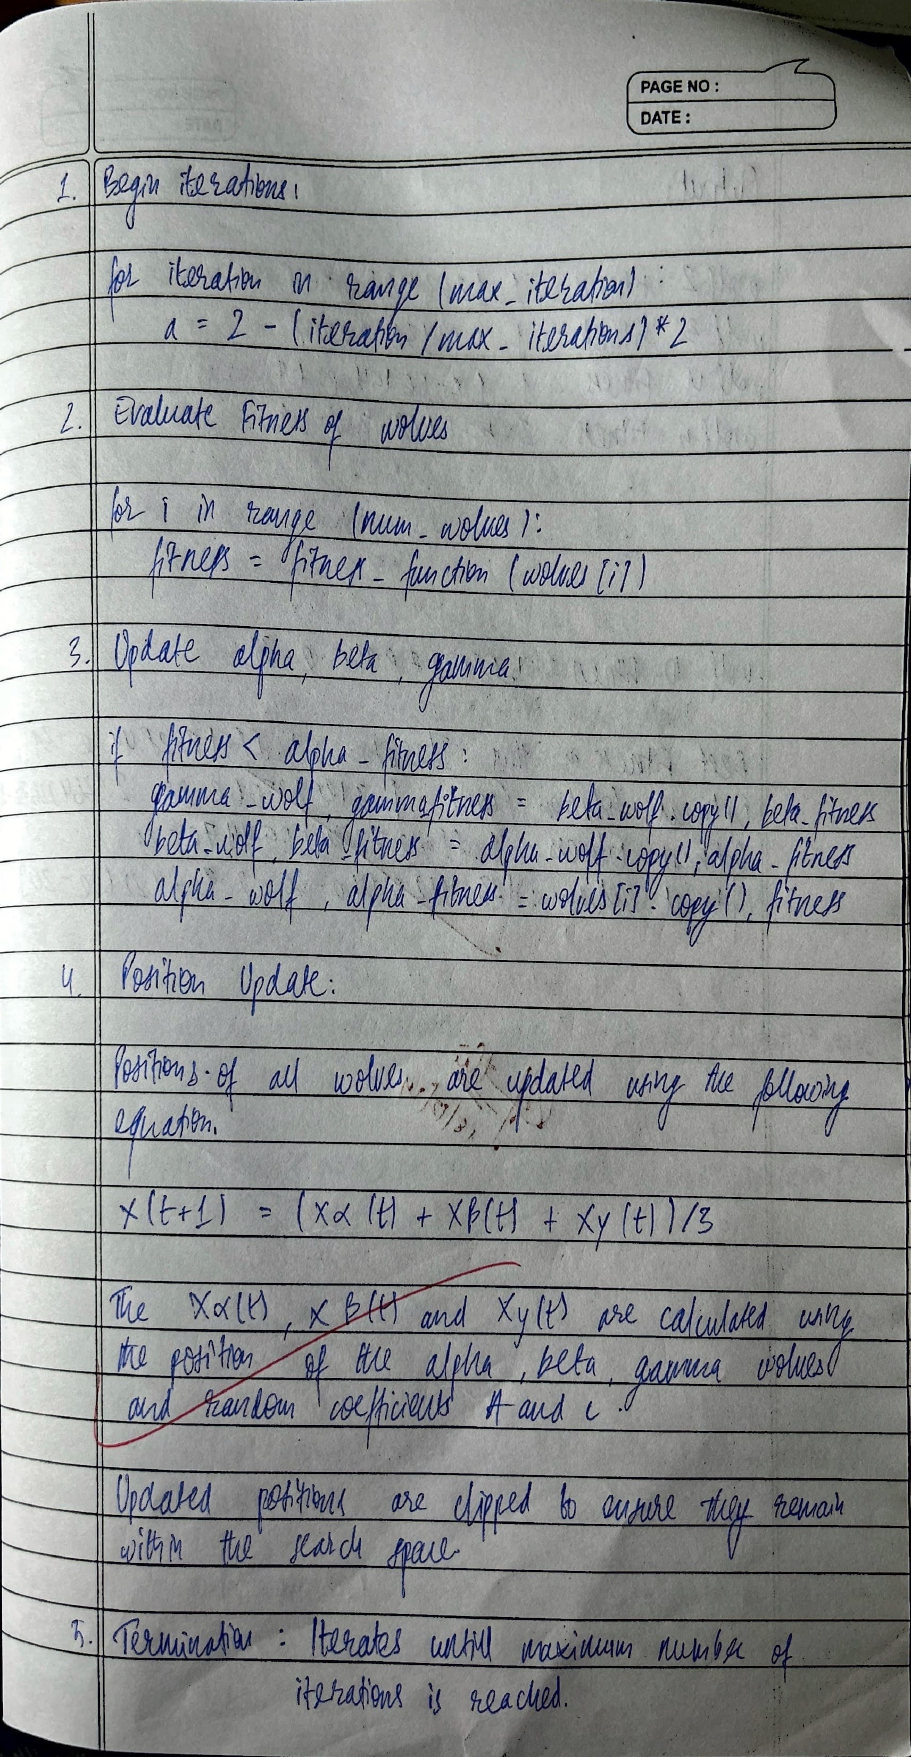 PAGE NO :
DATE :
1. Begin iterations:
for iteration in range (max_iteration) :
a = 2 - (iteration / max_iterations) * 2
2. Evaluate Fitness of wolves
for i in range (num_wolves):
fitness = fitness_function (wolves[i])
3. Update alpha, beta, gamma.
if fitness < alpha_fitness :
gamma_wolf, gammafitness = beta_wolf.copy(), beta_fitness
beta_wolf, beta_fitness = alpha_wolf.copy(), alpha_fitness
alpha_wolf, alpha_fitness = wolves[i].copy(), fitness
4. Position Update:
Positions of all wolves are updated using the following
equation.
X(t+1) = (Xα(t) + Xβ(t) + Xγ(t))/3
The Xα(t), Xβ(t) and Xγ(t) are calculated using
the position of the alpha, beta, gamma wolves
and random coefficients A and C.
Updated positions are clipped to ensure they remain
within the search space.
5. Termination : Iterates untill maximum number of
iterations is reached.